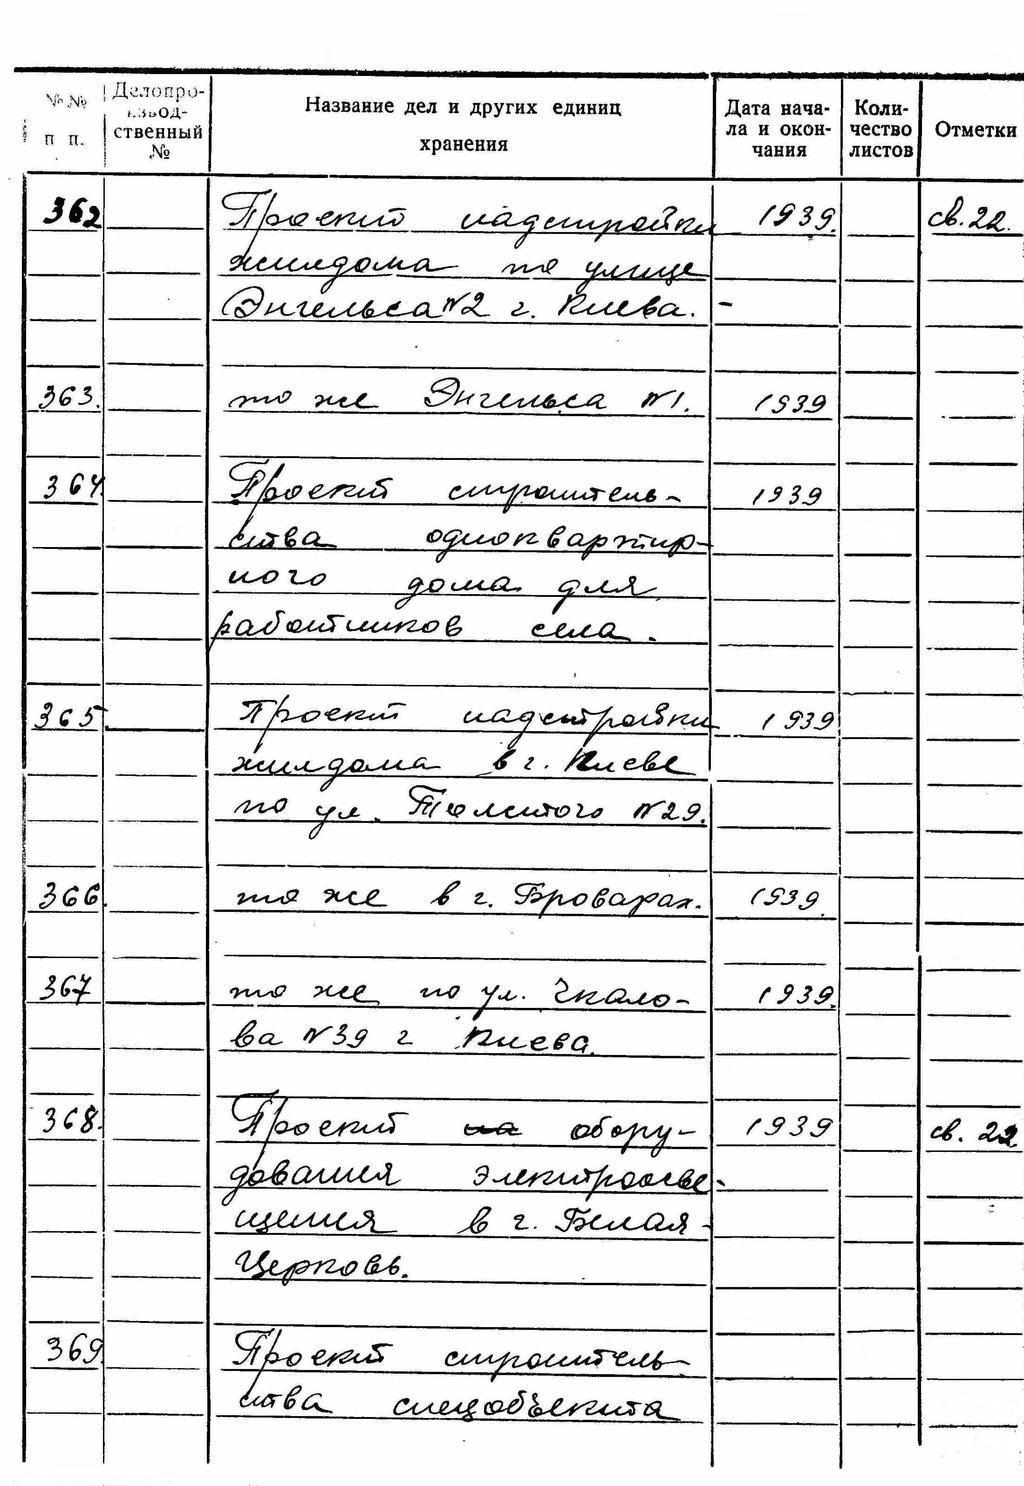 №№ п п. Делопроизводственный № Название дел и других единиц хранения Дата начала и окончания Количество листов Отметки
362 Проект надстройки 1939. св. 22.
жилдома по улице
Энгельса N2 г. Киева. -
363. то же Энгельса N1. 1939
364. Проект строитель- 1939
ства одноквартир-
ного дома для
работников села.
365. Проект надстройки 1939
жилдома в г. Киеве
по ул. Толстого N29.
366. то же в г. Броварах. 1939.
367 то же по ул. Чкало- 1939.
ва N39 г Киева.
368. Проект на обору- 1939 св. 22
дования электроосве-
щения в г. Белая-
Церковь.
369. Проект строитель-
ства спецобъекта